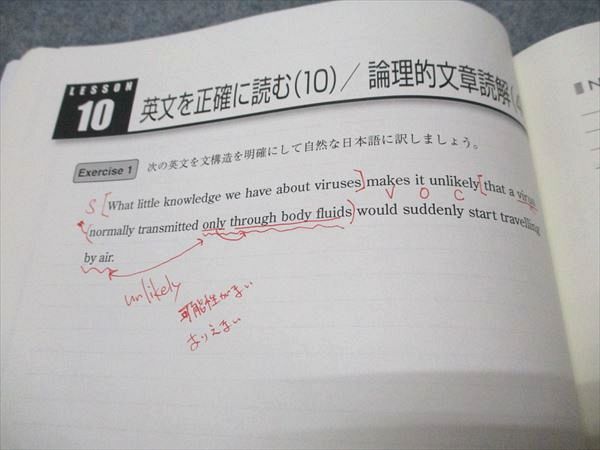 LESSON
10
英文を正確に読む(10)/ 論理的文章読解(4
Exercise 1 次の英文を文構造を明確にして自然な日本語に訳しましょう。
S [What little knowledge we have about viruses] makes it unlikely [that a virus
V O C
(normally transmitted only through body fluids) would suddenly start travelling
by air.
unlikely
可能性がない
ありえない